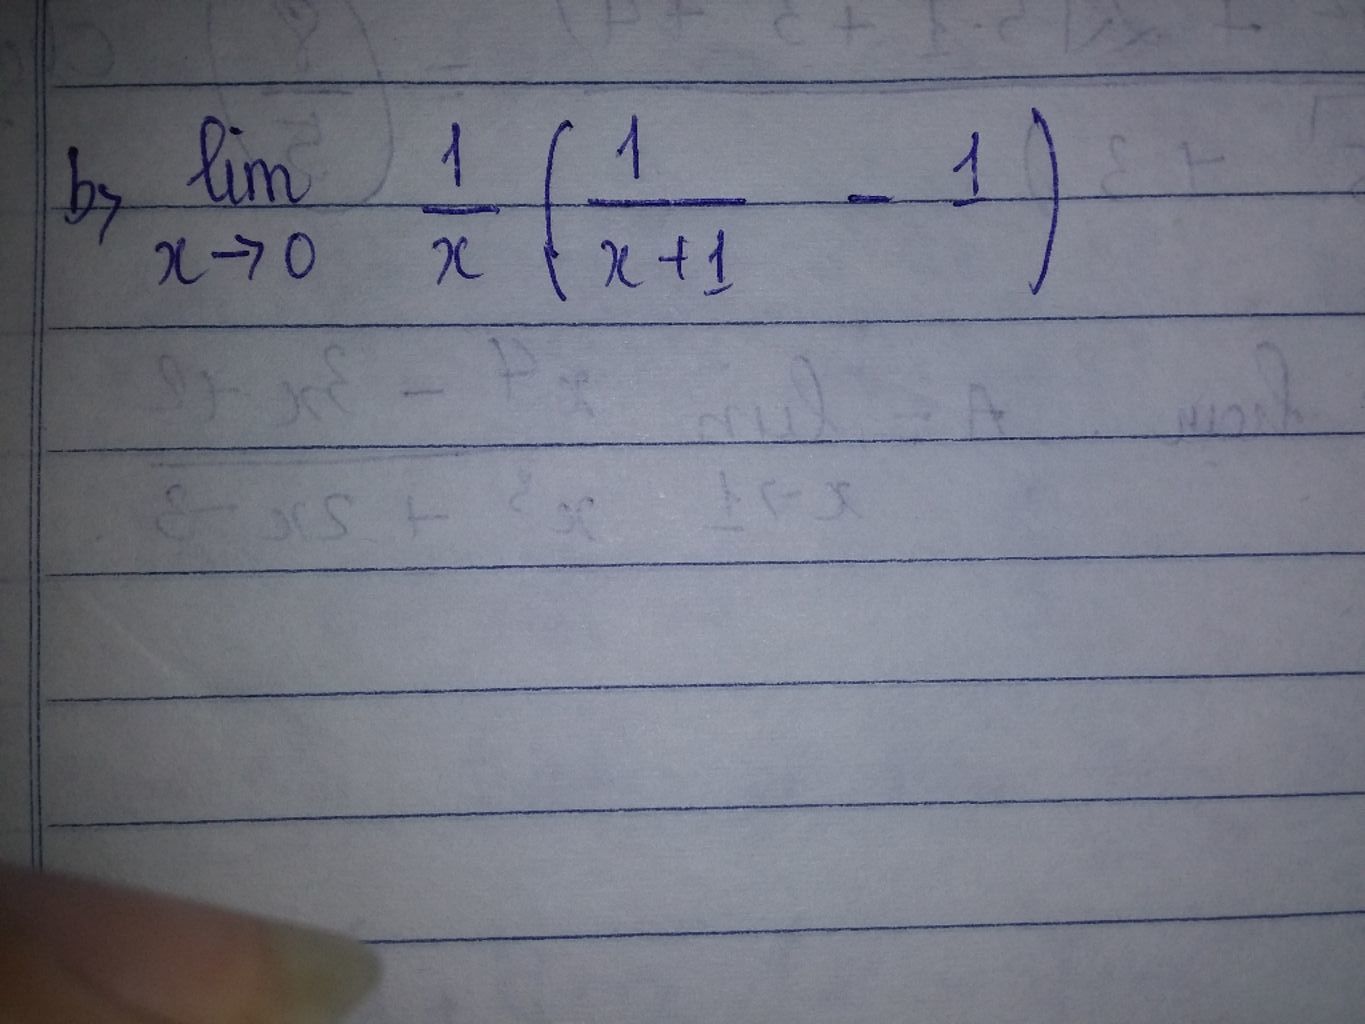 b, lim x→0 1/x ( 1/(x+1) - 1 )